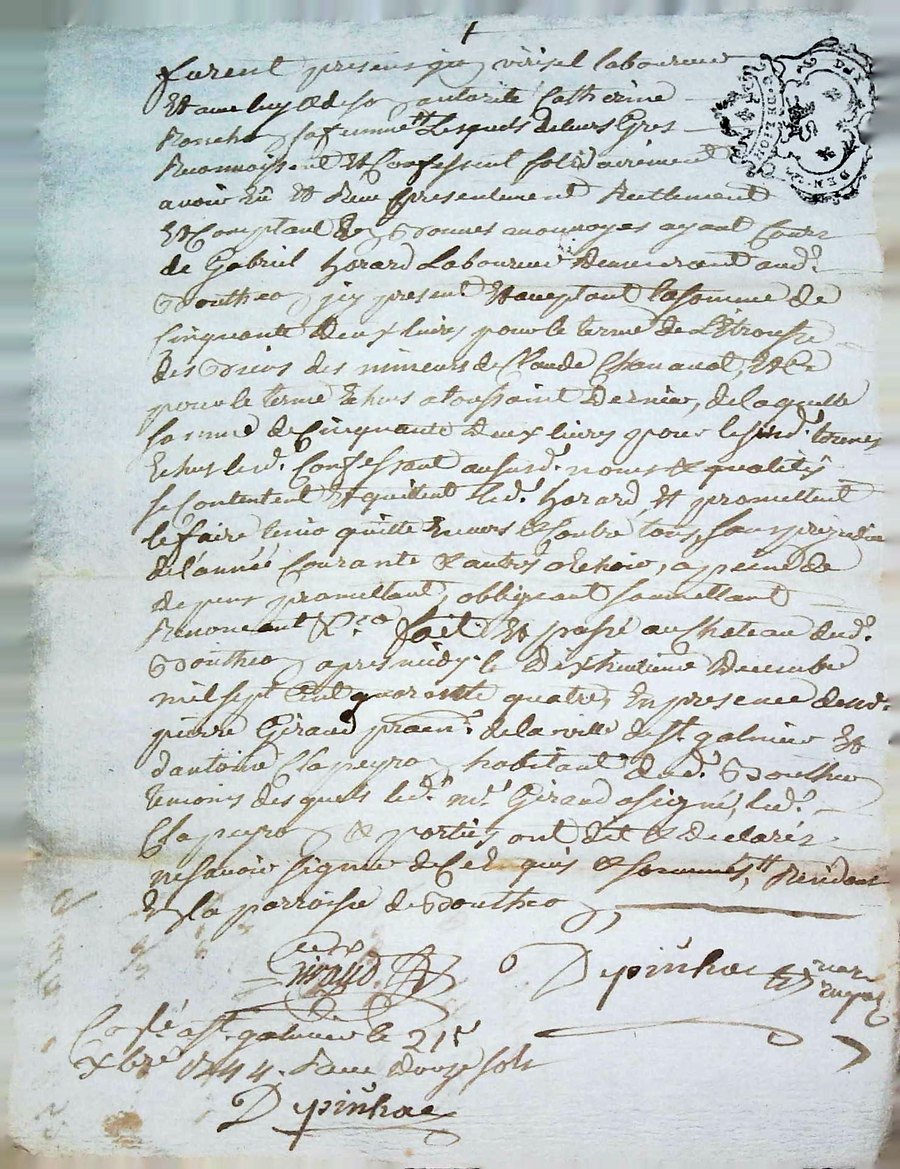 furent presens guy virisel laboureur
Et avec luy & de son autorité Catherine
sa femme Lesquels de leurs Grés
Reconnoissent Et Confessent solidairement
avoir Eü Et Reçeu presentement Reellement
Et Comptant En bonnes monnoyes ayant Cours
de Gabriel horard Laboureur demeurant aud.t
Boutheo jcy present Et acceptant la somme de
Cinquante deux livres pour le terme de L'étrousse
des biens des mineurs de Claude Chanavat, Et Ce
pour le terme Echeus a toussaint dernier, de laquelle
somme de Cinquante deux livres pour le susd.t terme
Echeus led.t Confessant aususd. noms & qualités
se Contentent Et quittent led.t horard Et promettent
le faire tenir quitte Envers & Contre tous, sans prejudice
de l'année Courante & autres a Echoir, a peine de
depens promettant, obligeant soumettant
Renonceant & fait Et passé au Chateau dud.t
Boutheo apres midy le dixhuitieme decembre
mil sept Cent quarante quatre, En presence de
pierre Giraud de la ville de St. galmier Et
d'antoine Clapeyro habitant dud.t Boutheo
temoins desquels led.t m.e Giraud a signé, led.t
Clapeyro & parties ont dit & declarés
ne savoir signer de Ce Enquis & sommés, Residants
En la parroisse de Boutheo
Giraud
Depinhac
no.re
royal
a St. galmier le 21e
Xbre 1744. Reçu douze sols
Depinhac